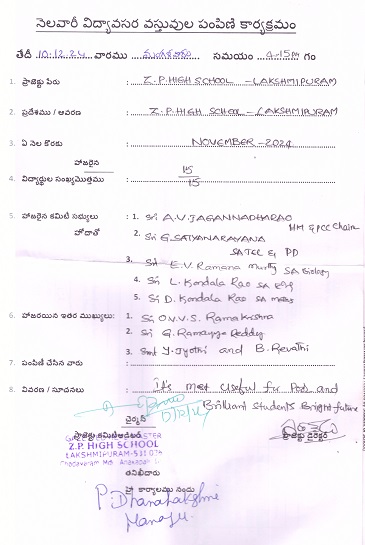 నెలవారీ విద్యావసర వస్తువుల పంపిణి కార్యక్రమం
తేదీ 10.12.24 వారము మంగళవారం సమయం 4-15pm గం
1. ప్రాజెక్టు పేరు : Z.P.HIGH SCHOOL - LAKSHMIPURAM
2. ప్రదేశము / ఆవరణ : Z.P.HIGH SCHOOL - LAKSHMIPURAM
3. ఏ నెల కొరకు : NOVEMBER-2024
హాజరైన 15
4. విద్యార్థుల సంఖ్య/మొత్తము : 15
5. హాజరైన కమిటి సభ్యులు : 1. Sri A.V.JAGANNADHARAO HM & PCC Chair
హోదాతో 2. Sri G.SATYANARAYANA
SA TEL & PD
3. Sri E.V. Ramana Murthy SA Biology
4. Sri L. Kondala Rao SA Eng
5. Sri D. Kondala Rao SA maths
6. హాజరయిన ఇతర ముఖ్యులు: 1. Sri O.N.V.S. Ramakrishna
2. Sri G. Ramayya Reddy
3. Smt Y. Jyothi and B. Revathi
7. పంపిణి చేసిన వారు :
8. వివరణ / సూచనలు : It's most useful for Poor and
Brilliant Students Bright future
చైర్మన్
ప్రాజెక్టు కమిటి ప్రాజెక్టు డైరెక్టర్
Z.P. HIGH SCHOOL
LAKSHMIPURAM-531 024
తనిఖీదారు
హై కార్యాలము నందు
P. Dhanalakshmi
Manager